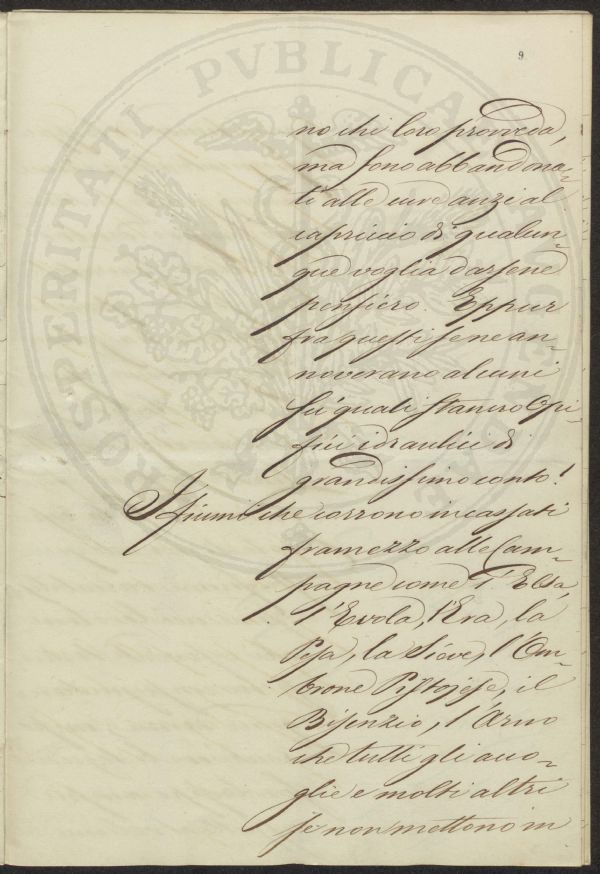 9
no chi loro provveda,
ma sono abbandona-
ti alle cure anzi al
capriccio di qualun-
que voglia darsene
pensiero. Eppur
fra questi se ne an-
noverano alcuni
su' quali stanno Opi-
fici idraulici di
grandissimo conto!
I fiumi che corrono incassati
framezzo alle Cam-
pagne come l'Elsa,
l'Evola, l'Era, la
Pesa, la Sieve, l'Om-
brone Pistojese, il
Bisenzio, l'Arno
che tutti gli acco-
glie e molti altri
se non mettono in
PROSPERITATI PVBLICAE AVGENDAE